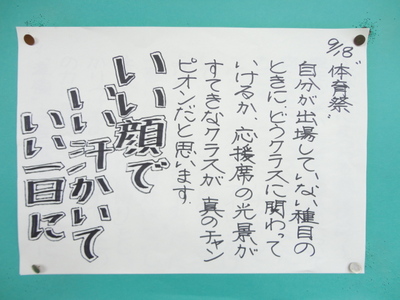 9/18 "体育祭"
自分が出場していない種目の
ときに、どうクラスに関わって
いけるか、応援席の光景が
すてきなクラスが 真のチャン
ピオンだと思います。
いい顔で
いい汗かいて
いい一日に